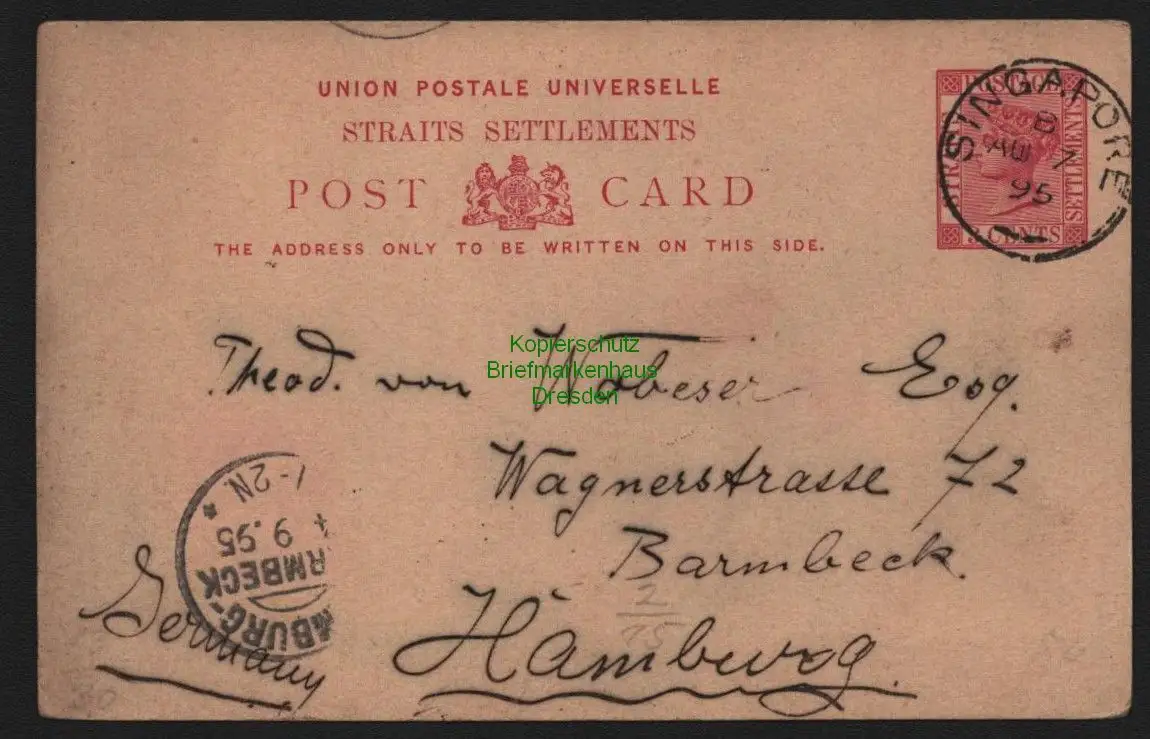 UNION POSTALE UNIVERSELLE
STRAITS SETTLEMENTS
POST CARD
THE ADDRESS ONLY TO BE WRITTEN ON THIS SIDE.
POSTAGE
STRAITS
SETTLEMENTS
3 CENTS
SINGAPORE
B
AU 7
95
Kopierschutz
Briefmarkenhaus
Dresden
Theod. von Wobeser Esq.
Wagnerstrasse 72
Barmbeck.
Hamburg.
Germany
1-2N
9.95
MBURG-
RMBECK
2
30